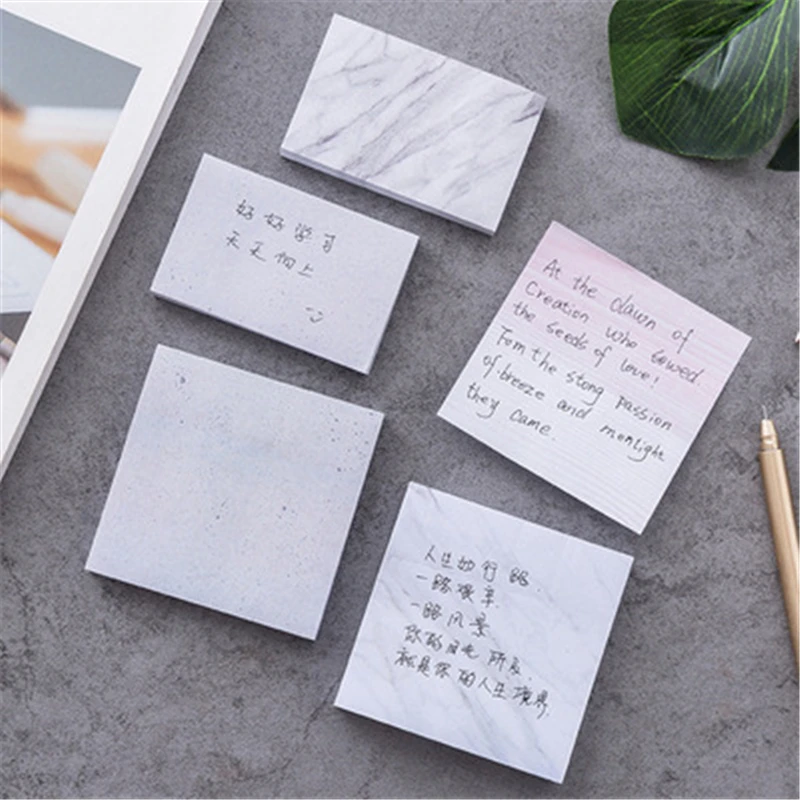 好好学习
天天向上
At the dawn of
Creation who sowed
the seeds of love!
Fom the stong passion
of breeze and monlight
they came.
人生如行路.
一路艰辛.
一路风景
你的目光所及.
就是你的人生境界.